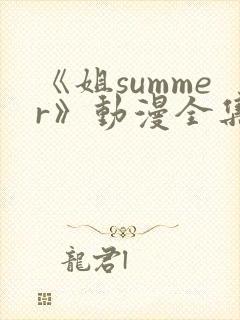 《姐summe
r》動漫全集
龍君l